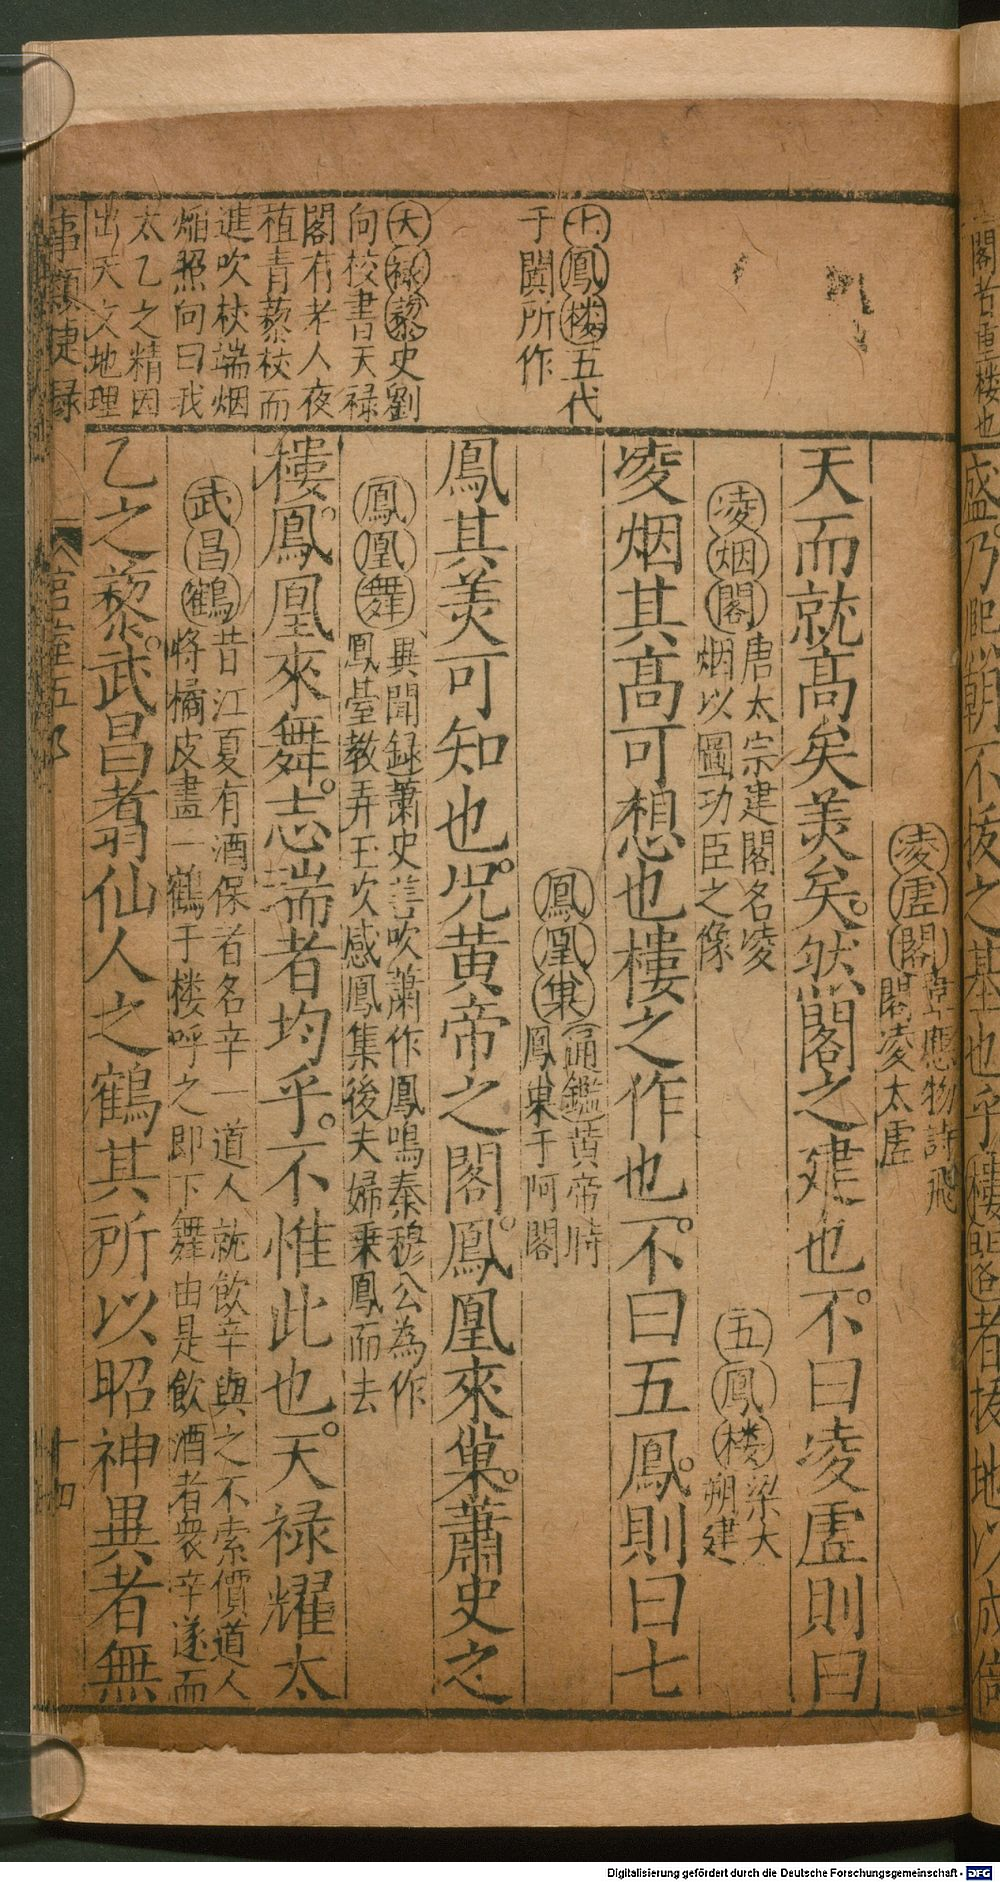 閣者重樓也
盛乃熙朝不拔之基也乎樓閣者拔地以成倚
七鳳樓五代
于闐所作
天祿藜史劉
向校書天祿
閣有老人夜
植青藜杖而
進吹杖端烟
焰照向曰我
太乙之精因
出天文地理
凌虛閣韋應物詩飛
閣凌太虛
天而就高矣美矣。然閣之建也。不曰凌虛則曰
凌烟閣唐太宗建閣名凌
烟以圖功臣之像
五鳳楼梁太
朔建
凌烟其高可想也樓之作也。不曰五鳳。則曰七
鳳凰巢通鑑黄帝時
鳳巢于阿閣
鳳其美可知也。况黄帝之閣。鳳凰來巢。蕭史之
鳳凰舞異聞録蕭史善吹簫作鳳鳴秦穆公為作
鳳臺教弄玉吹感鳳集後夫婦乗鳳而去
樓。鳳凰來舞。志端者均乎。不惟此也。天禄耀太
武昌鶴昔江夏有酒保者名辛一道人就飲辛與之不索價道人
將橘皮畫一鶴于楼呼之即下舞由是飲酒者衆辛遂而
乙之藜。武昌翥仙人之鶴其所以昭神異者無
事類捷録
宫室五
十四
Digitalisierung gefördert durch die Deutsche Forschungsgemeinschaft - DFG